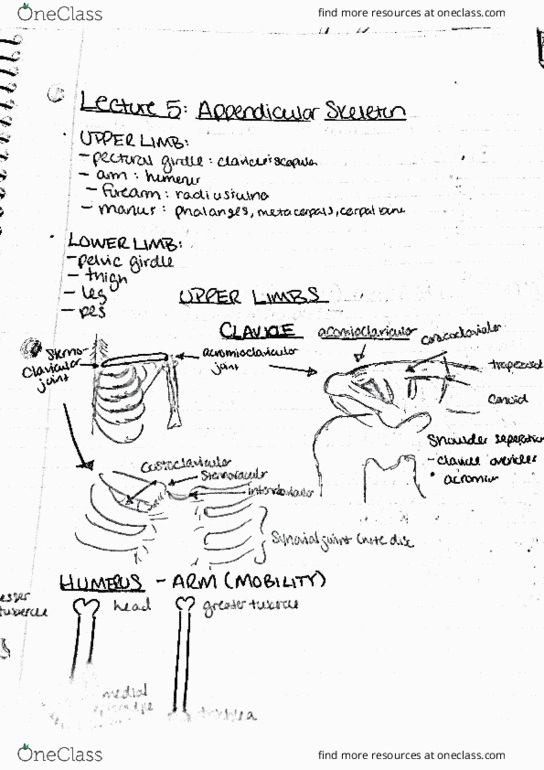 OneClass
find more resources at oneclass.com
Lecture 5: Appendicular Skeleton
UPPER LIMB:
- pectoral girdle : clavicle; scapula
- arm : humerus
- forearm : radius; ulna
- manus : phalanges, metacarpals, carpal bone
LOWER LIMB:
- pelvic girdle
- thigh
- leg
- pes
UPPER LIMBS
CLAVICLE
acromioclavicular
coracoclavicular
Sterno-
clavicular
joint
acromioclavicular
joint
trapezoid
conoid
Shoulder separation
- clavicle overrides
acromion
costoclavicular
interclavicular
Synovial joint (note disc
HUMERUS - ARM (MOBILITY)
esser
tubercle
head
greater tubercle
medial
trochlea
OneClass
find more resources at oneclass.com